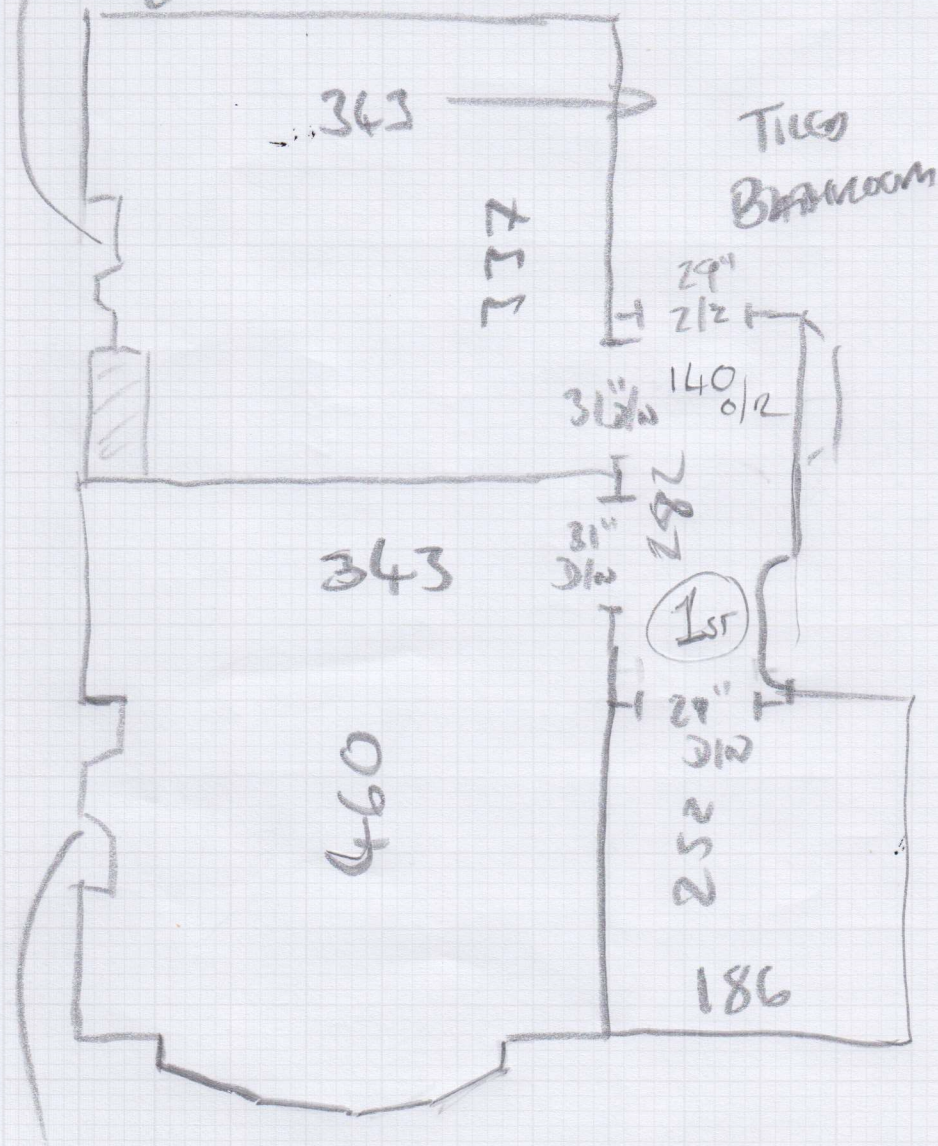 343
TILED
BATHROOM
337
29"
2/2
31"
D/N
140
0/2
282
31"
D/N
343
1ST
29"
D/N
460
252
186